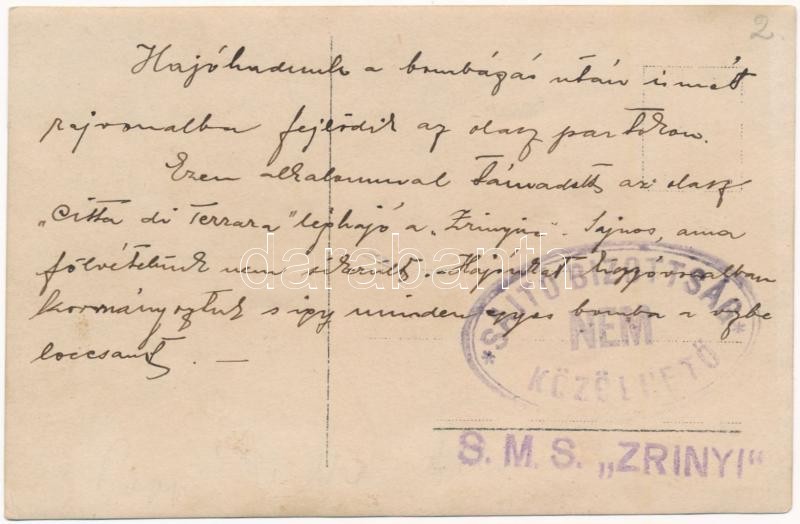 2.
Hajóhadunk a bombázás után ismét
rajvonalba fejlődik az olasz partokon.
Ezen alkalommal támadott az olasz
„Citta di Ferrara” léghajó a „Zrinyire”. Sajnos, ama
fölvételünk nem sikerült. Hajónkat kigyóvonalban
kormányoztuk s igy minden egyes bomba a vizbe
loccsant. —
*SAJTÓ BIZOTTSÁG*
NEM
KÖZÖLHETŐ
S. M. S. „ZRINYI“
darabanth.com